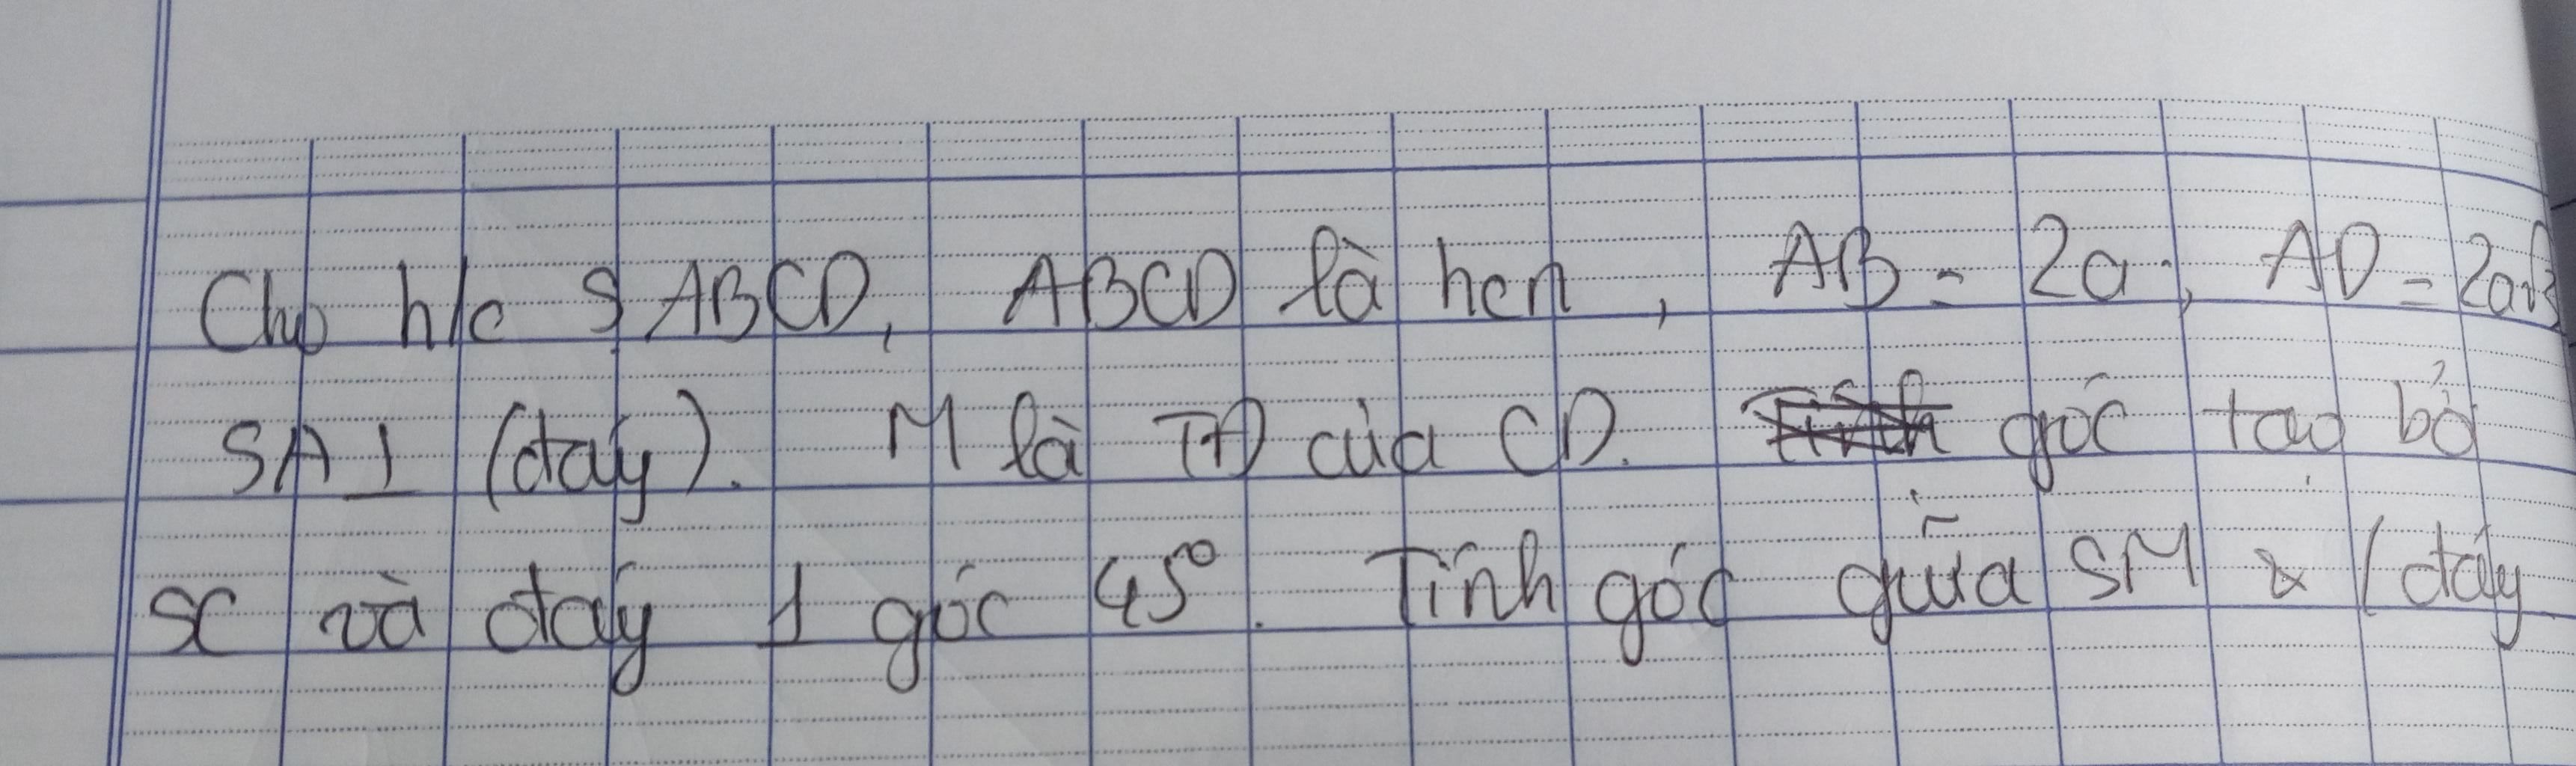 Cho h/c S.ABCD, ABCD là hcn, AB = 2a, AD = 2a√3
SA ⊥ (đáy). M là TĐ của CD. góc tạo bở
SC và đáy 1 góc 45°. Tính góc giữa SM & (đáy